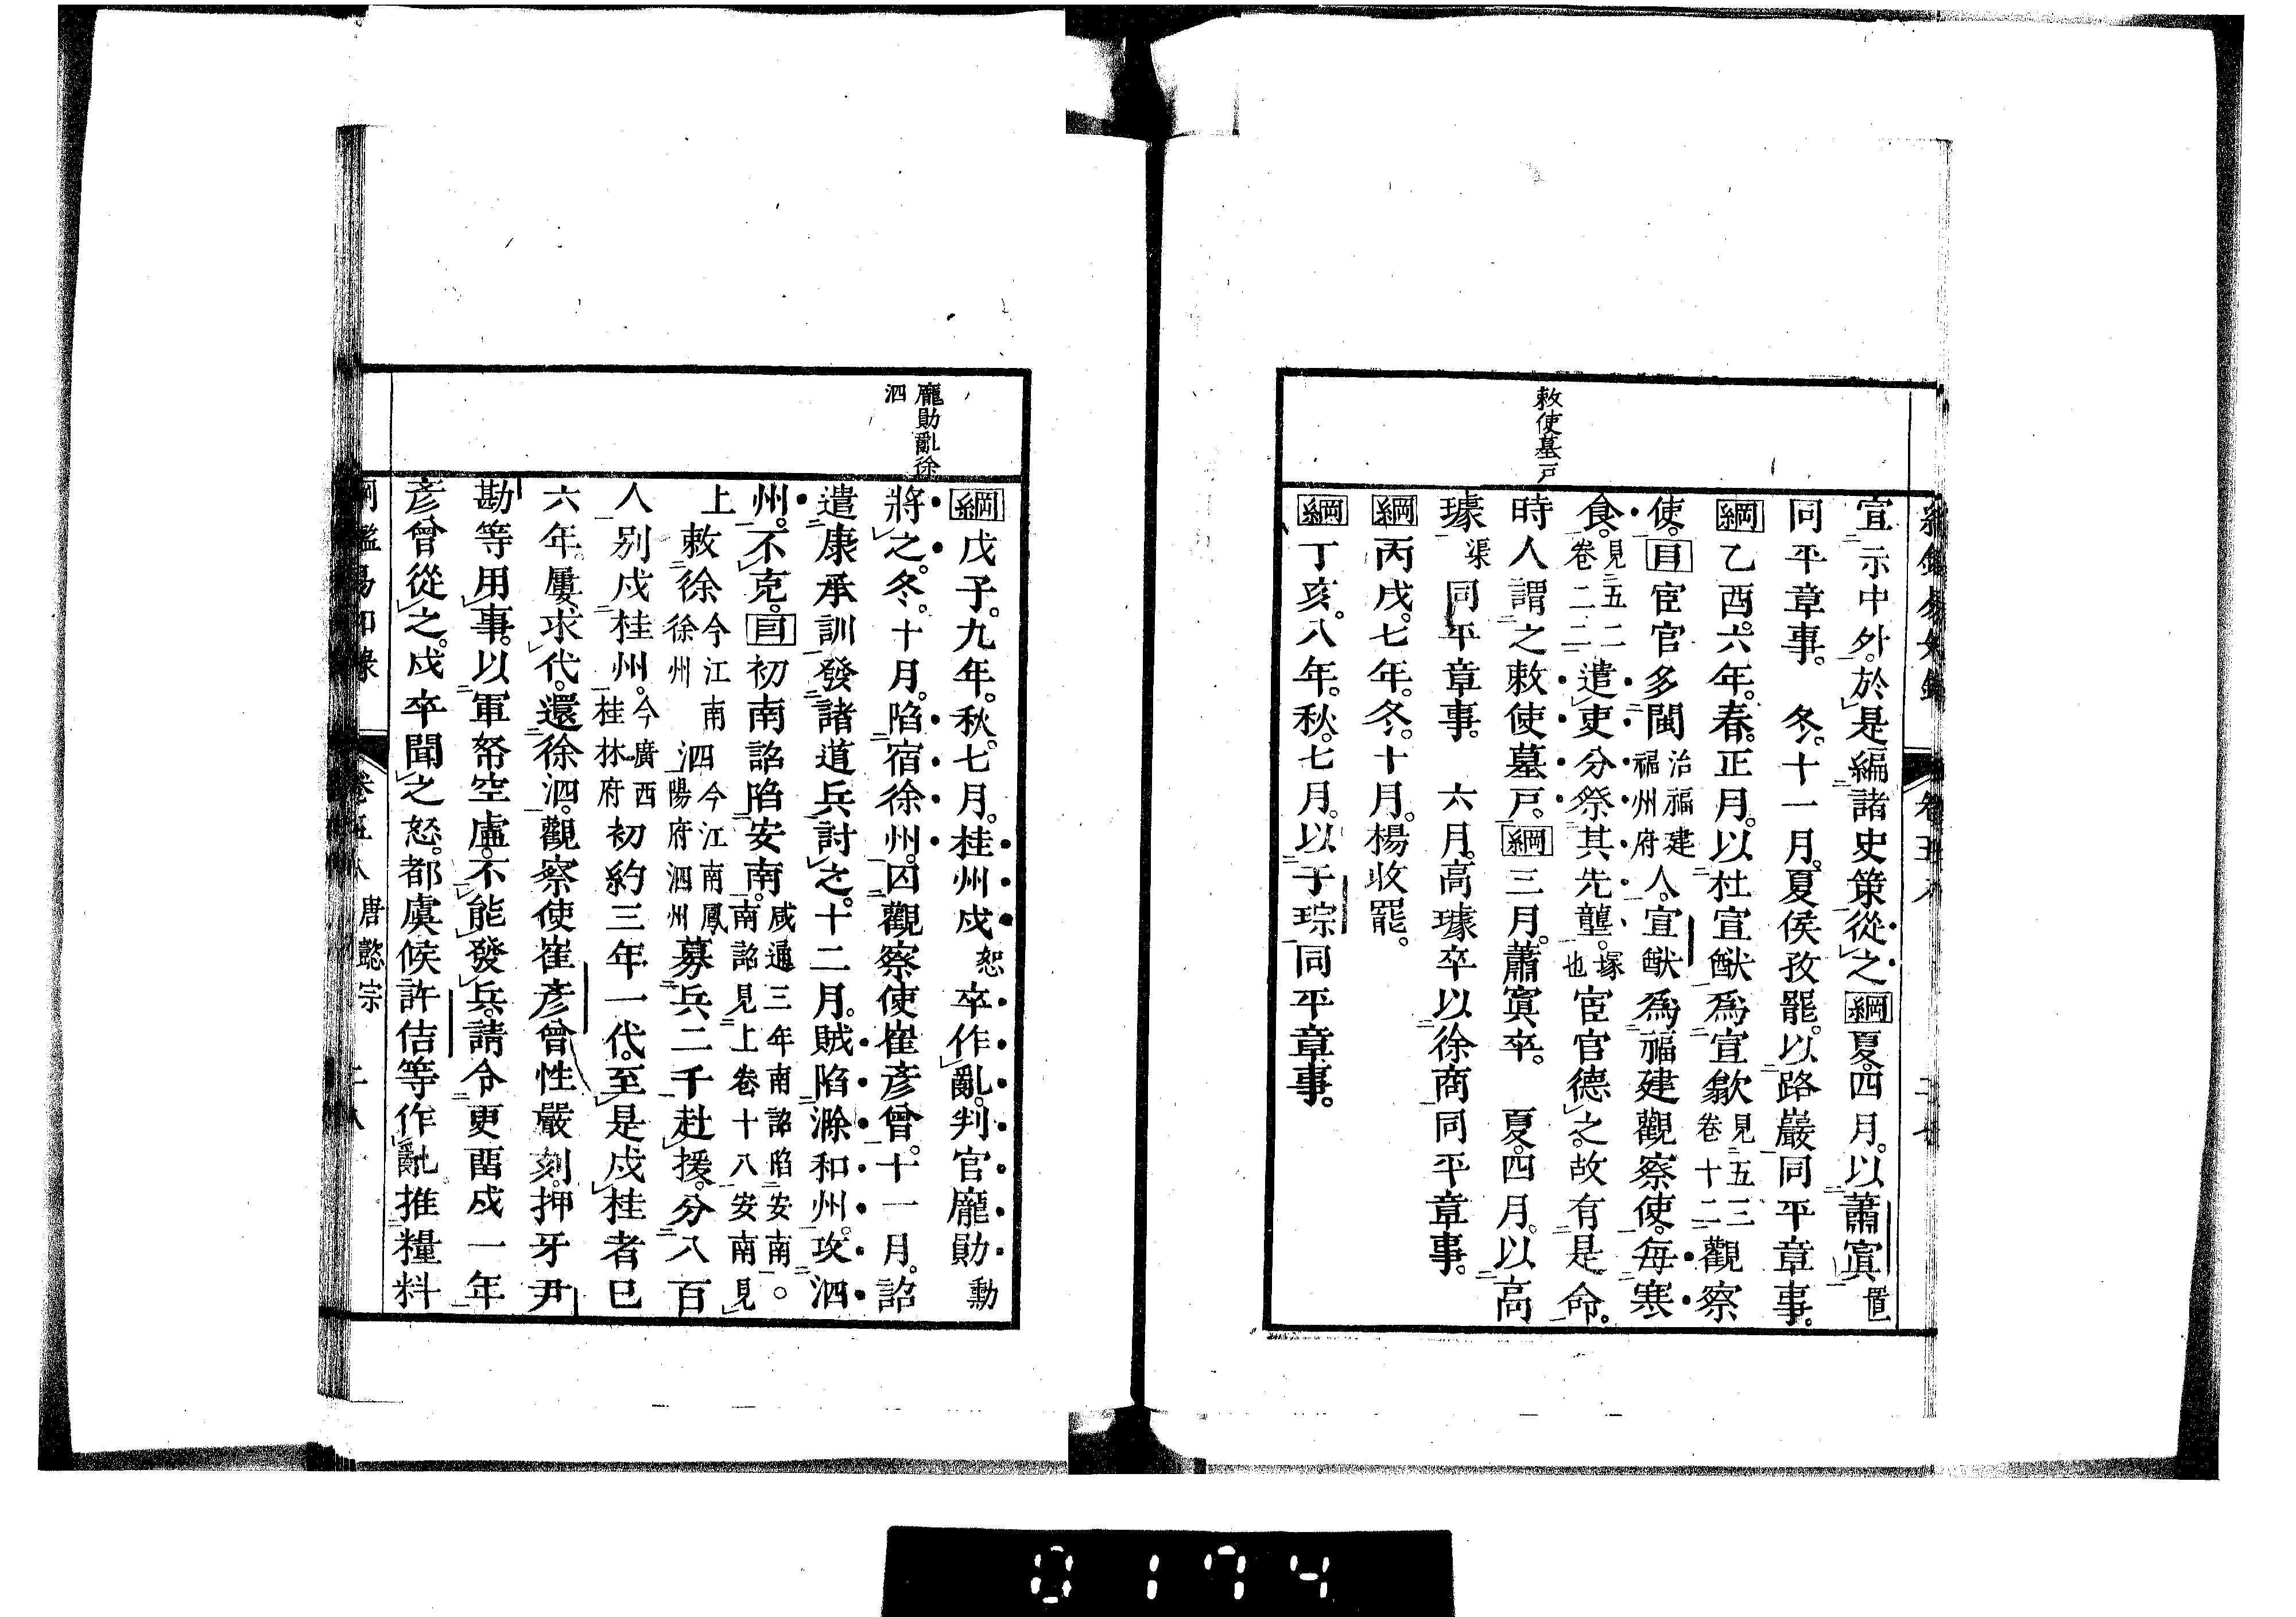 敕使墓戸
宣示中外。於是編諸史策從之綱夏。四月。以蕭寘置
同平章事。　冬。十一月。夏侯孜罷。以路巖同平章事。
綱乙酉。六年。春。正月。以杜宣猷爲宣歙見五三卷十二觀察
使。目宦官多閩治福建福州府人。宣猷爲福建觀察使。每寒
食。見五二卷二二遣吏分祭其先壟。塚也宦官德之。故有是命。
時人謂之敕使墓戸。綱三月。蕭寘卒。　夏。四月。以高
璩渠同平章事。　六月。高璩卒以徐商同平章事。
綱丙戌。七年。冬。十月。楊收罷。
綱丁亥。八年。秋。七月。以于琮同平章事。
龐勛亂徐
泗
綱戊子。九年。秋。七月。桂州戍恕卒作亂。判官龐勛勳
將之。冬。十月。陷宿徐州。囚觀察使崔彥曾。十一月。詔
遣康承訓發諸道兵討之。十二月。賊陷滁和州。攻泗
州。不克。目初南詔陷安南。咸通三年南詔陷安南。南詔見上卷十八安南見
上敕徐今江南徐州泗今江南鳳陽府泗州募兵二千赴援。分八百
人別戍桂州。今廣西桂林府初約三年一代。至是戍桂者巳
六年。屢求代。還徐泗。觀察使崔彥曾性嚴刻。押牙尹
勘等用事。以軍帑空虛。不能發兵。請令更畱戍一年
彥曾從之。戍卒聞之怒。都虞候許佶等作亂。推糧料
卷五八　唐懿宗